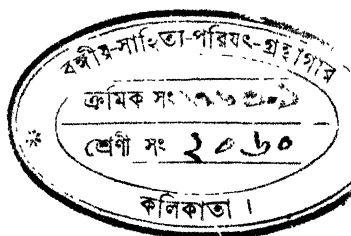 বঙ্গীয়-সাহিত্য-পরিষৎ-গ্রন্থাগার
ক্রমিক সং
শ্রেণী সং ২০৬০
কলিকাতা।